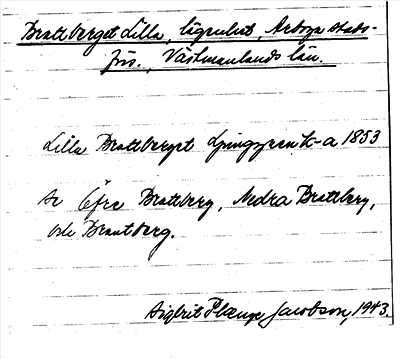 Brattberget Lilla, lägenhet, Arboga stads-
förs., Västmanlands län.
Lilla Brattberget Ljunggren k-a 1853
Se Öfre Brattberg, Nedra Brattberg,
och Brantberg.
Sigbrit Plænge Jacobson, 1943.